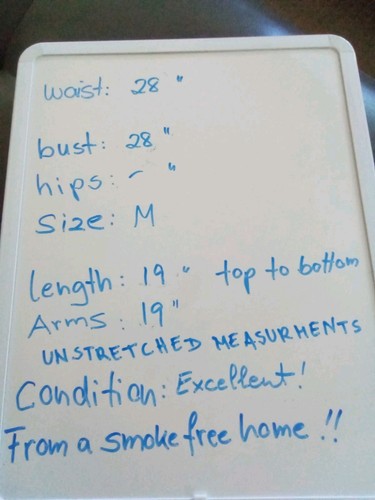 waist: 28 "
bust: 28 "
hips: - "
Size: M
length: 19 " top to bottom
Arms: 19 "
UNSTRETCHED MEASURMENTS
Condition: Excellent!
From a smoke free home !!